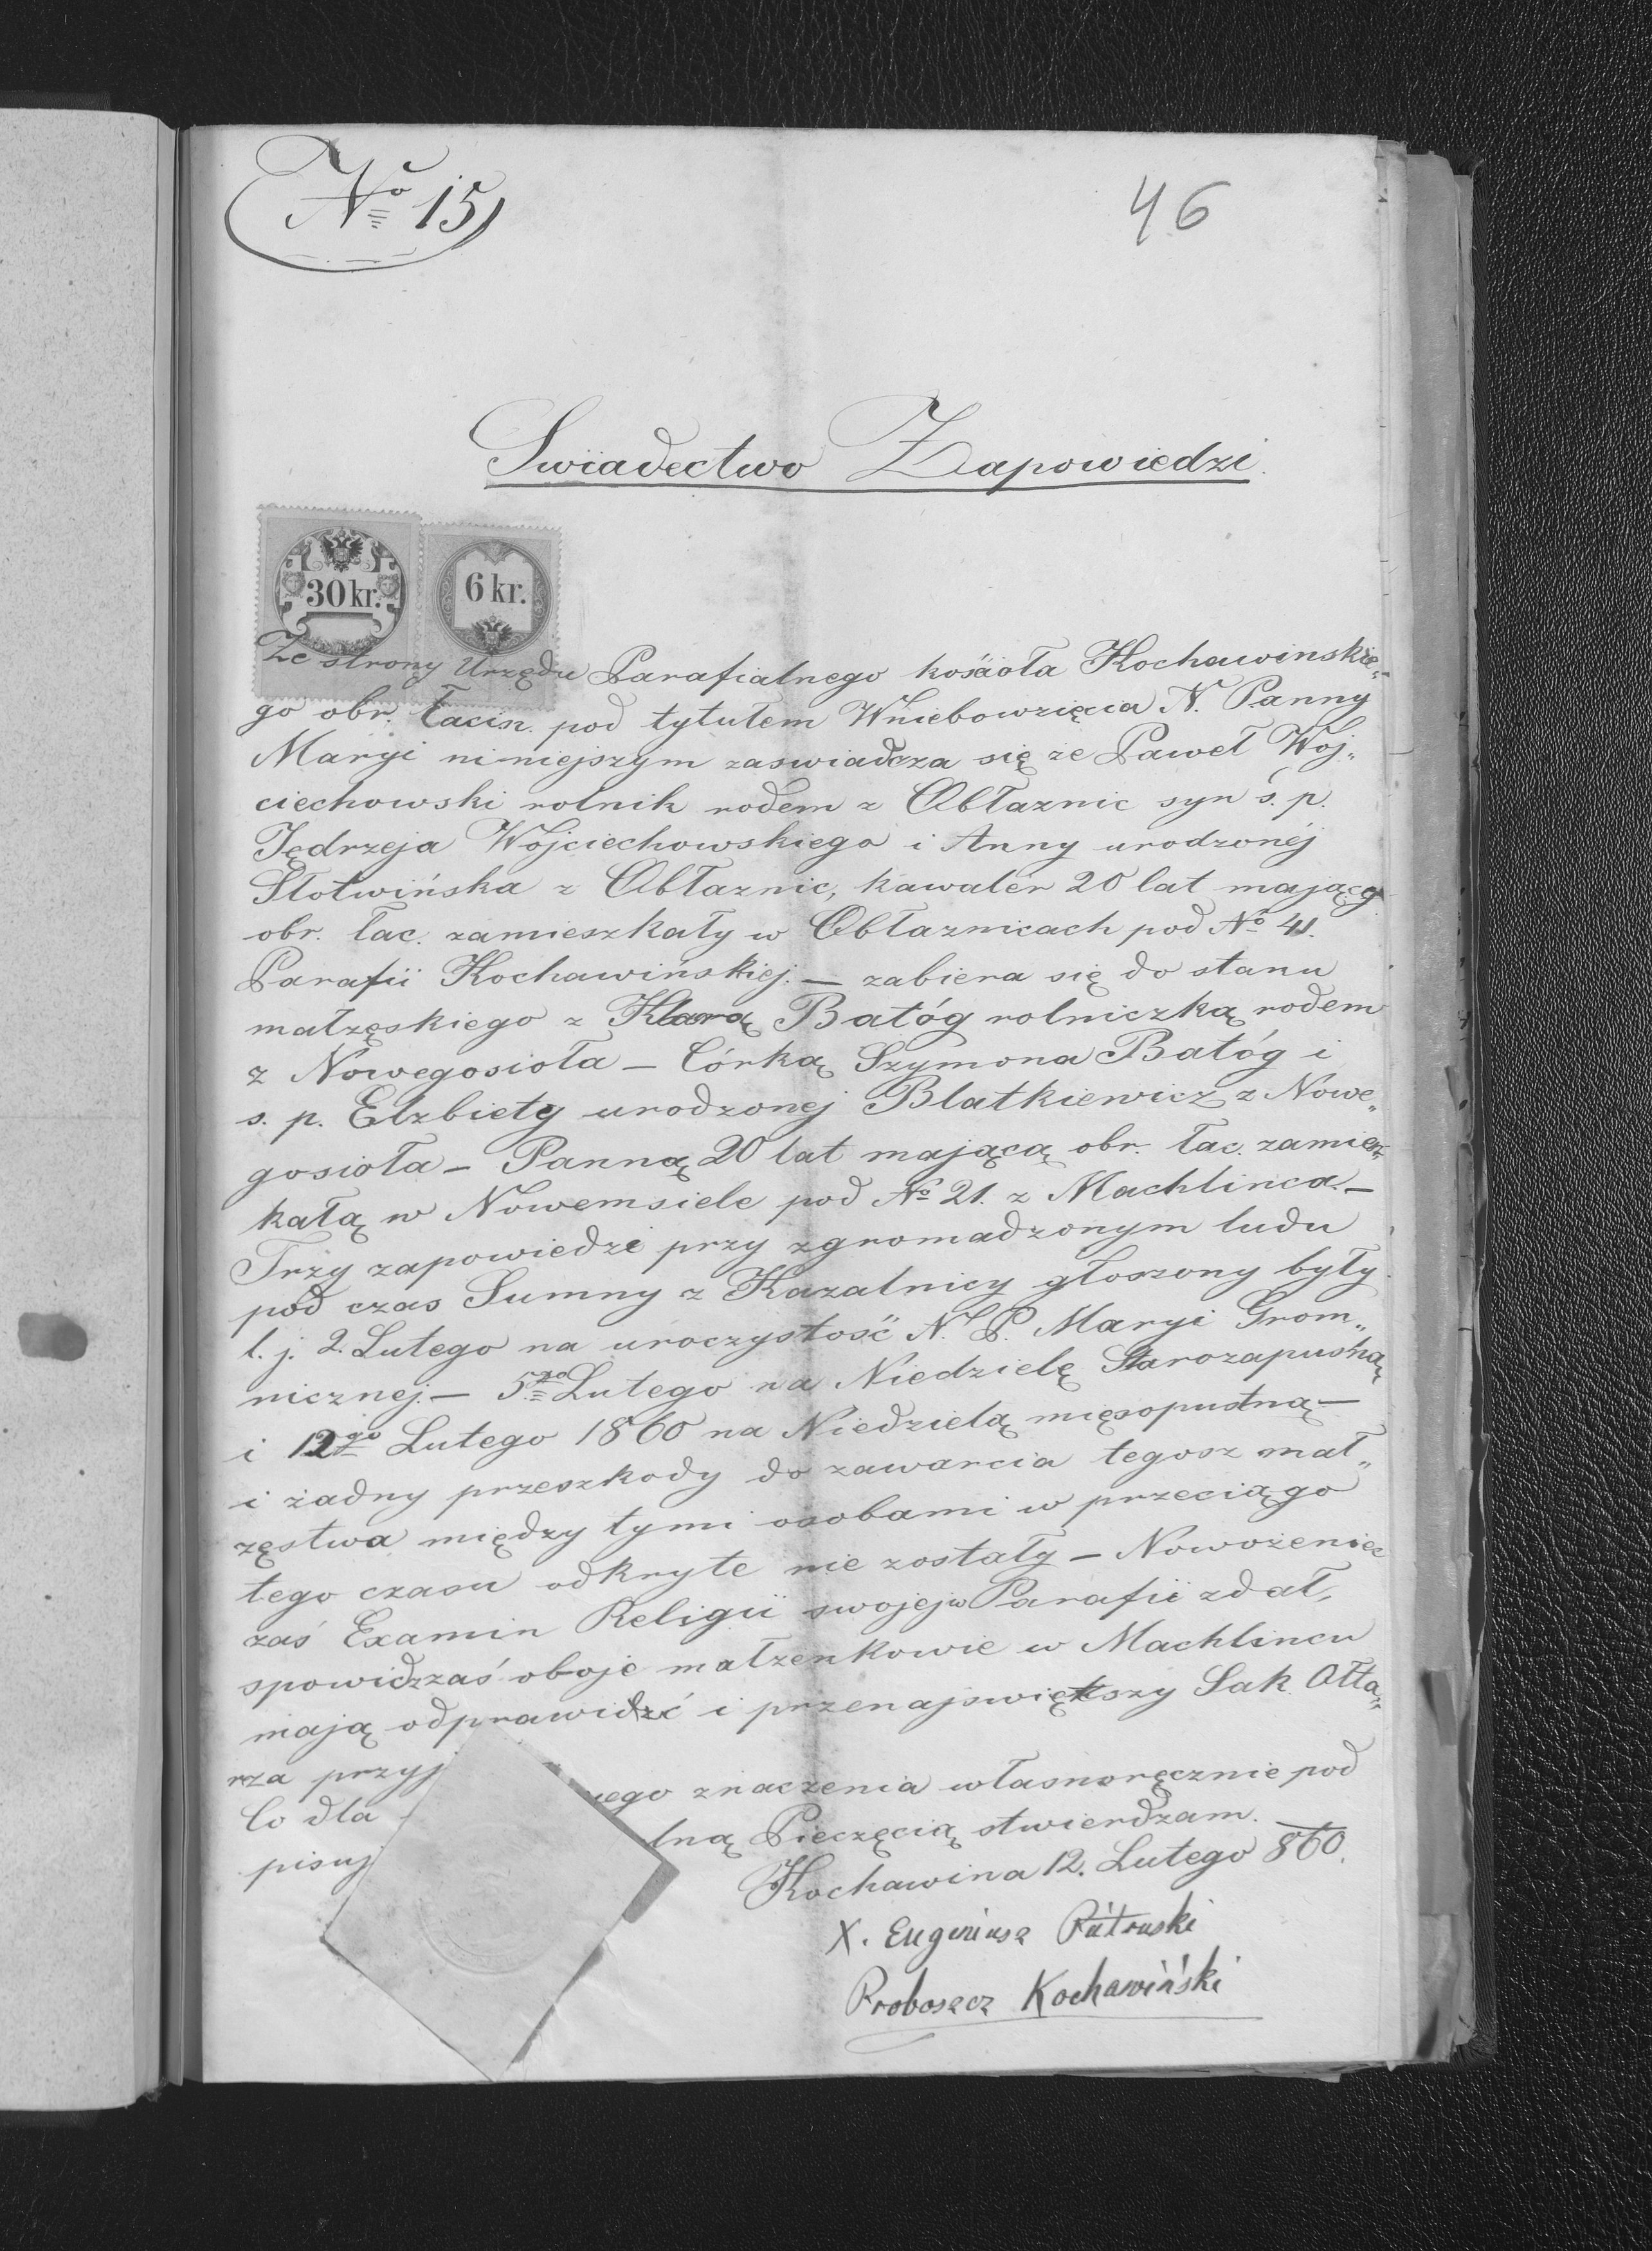 No 15
46
Swiadectwo Zapowiedzi.
30 kr.
6 kr.
Ze strony Urzędu Parafialnego kościoła Kochawinskie„
go obr. łacin. pod tytułem Wniebowzięcia N. Panny
Maryi niniejszym zaswiadcza się że Paweł Woj„
ciechowski rolnik rodem z Obłaznic syn ś. p.
Jędrzeja Wojciechowskiego i Anny urodzonéj
Słotwińska z Obłaznic, kawaler 20 lat mający
obr. łac. zamieszkały w Obłaznicach pod No 41.
Parafii Kochawińskiej. — zabiera się do stanu
małzęskiego z Klarą Batóg rolniczką rodem
z Nowegosioła — Córką Szymona Batóg i
s. p. Elzbiety urodzonej Blatkiewicz z Nowe„
gosioła — Panną 20 lat mającą obr. łac. zamiesz„
kałą w Nowemsiele pod No 21. z Machlinca. —
Trzy zapowiedzi przy zgromadzonym ludu
pod czas Summy z Kazalnicy głoszony były
t. j. 2. Lutego na uroczystość N. P. Maryi Grom„
nicznej. — 5go Lutego na Niedzielę Starozapustną
i 12go Lutego 1860 na Niedzielą mięsopustną —
i żadny przeszkody do zawarcia tegosz mał„
zęstwa między tymi osobami w przeciągo
tego czasu odkryte nie zostały — Nowożeniec
zaś Examin Religii swojej w Parafii zdał,
spowidz zaś oboje małzenkowie w Machlincu
mają odprawidzć i przenajswiętszy Sak. Ołta„
rza przyj
Co dla nego znaczenia własnoręcznie pod
pisuj lną Pieczęcią stwierdzam.
Kochawina 12. Lutego 860.
X. Eugeniusz Pietruski
Proboszcz Kochawiński